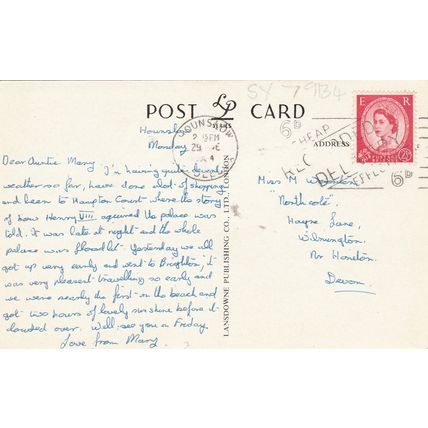 POST CARD
LP
SERIES
SY 79B4
Hounslow
Monday.
Dear Auntie Mary, I'm having quite decent
weather so far, have done alot of shopping
and been to Hampton Court where the story
of how Henry VIII acquired the palace was
told. It was late at night and the whole
palace was floodlit. Yesterday we all
got up very early and went to Brighton it
was very pleasant travelling so early and
we were nearly the first on the beach and
got two hours of lovely sunshine before it
clouded over. Will see you on Friday.
Love from Mary
LANSDOWNE PUBLISHING CO., LTD., LONDON
HOUNSLOW
ADDRESS
6D
CHEAP
RECORDED
DELIVERY
6D
E R
2½D
Miss M
"Northcote"
Hayne Lane,
Wilmington,
Nr Honiton.
Devon.